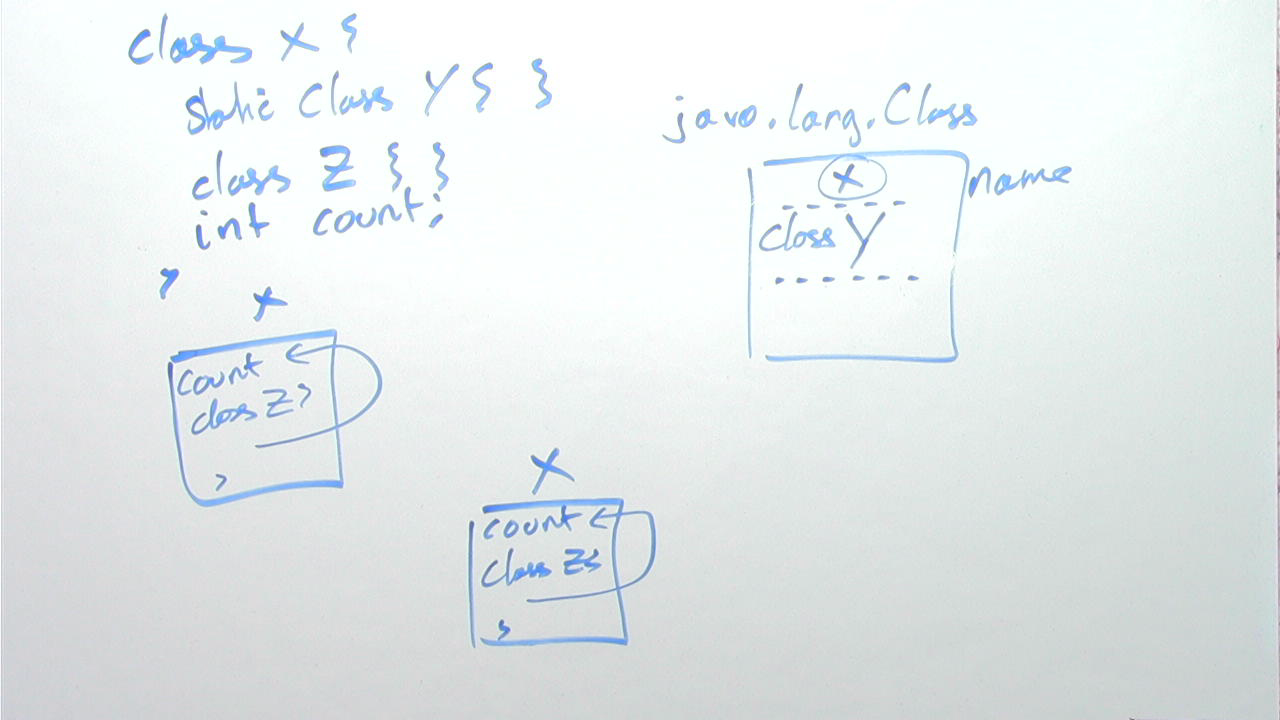 class X {
static Class Y { }
class Z { }
int count;
}
java.lang.Class
X
name
class Y
X
count
class Z {
}
X
count
class Z {
}